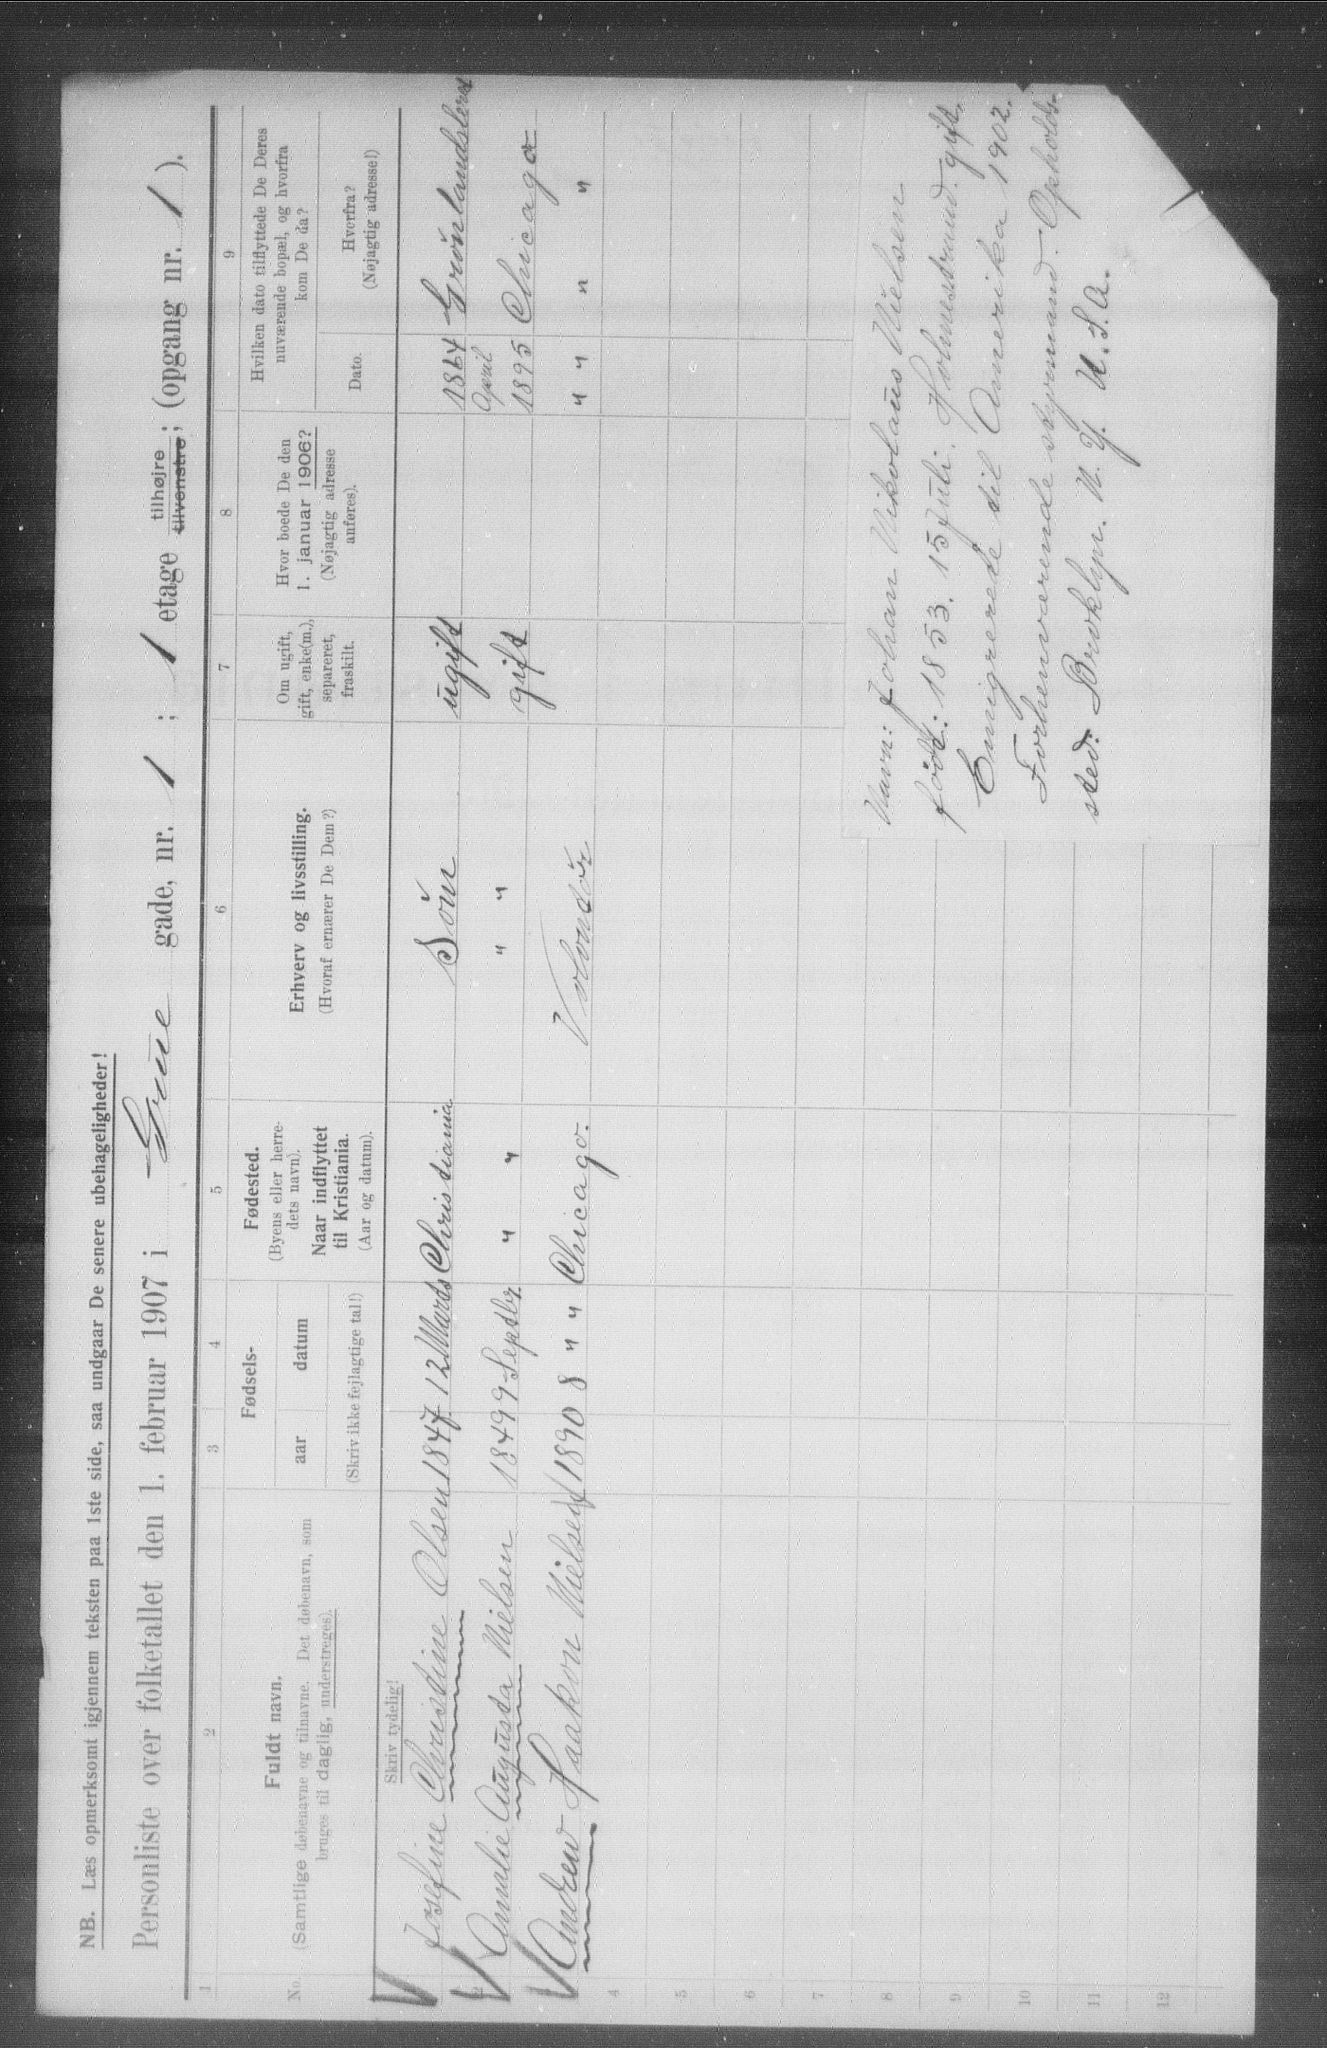 NB. Læs opmerksomt igjennem teksten paa 1ste side, saa undgaar De senere ubehageligheder!
Personliste over folketallet den 1. februar 1907 i Grüne gade, nr. 1 ; 1 etage tilhøjre tilvenstre; (opgang nr. 1 ).
1 2 3 4 5 6 7 8 9
No.
Fuldt navn.
(Samtlige døbenavne og tilnavne. Det døbenavn, som
bruges til daglig, understreges).
Fødsels-
aar datum
(Skriv ikke fejlagtige tal!)
Fødested.
(Byens eller herre-
dets navn).
Naar indflyttet
til Kristiania.
(Aar og datum).
Erhverv og livsstilling.
(Hvoraf ernærer De Dem?)
Om ugift,
gift, enke(m.),
separeret,
fraskilt.
Hvor boede De den
1. januar 1906?
(Nøjagtig adresse
anføres).
Hvilken dato tilflyttede De Deres
nuværende bopæl, og hvorfra
kom De da?
Dato.
Hvorfra?
(Nøjagtig adresse!)
Skriv tydelig!
Josefine Christine Olsen 1847 12 Marts Christiania Söm ugift Grönlandsleret
2 Amalie Augusta Nielsen 1849 9 Septbr. " " " " gift April 1895 Chicago
Andrew Haakon Nielsen 1890 8 " " Chicago. Volontör " " " "
4
5
6
7
8
9
10
11
12
Navn: Johan Nikolaus Nielsen
född: 1853. 15 Juli. Holmestrand. gift.
Emigrerede til Amerika 1902.
Forhenværende styrmand. Opholds-
sted: Brooklyn. N. Y. U. S. A.